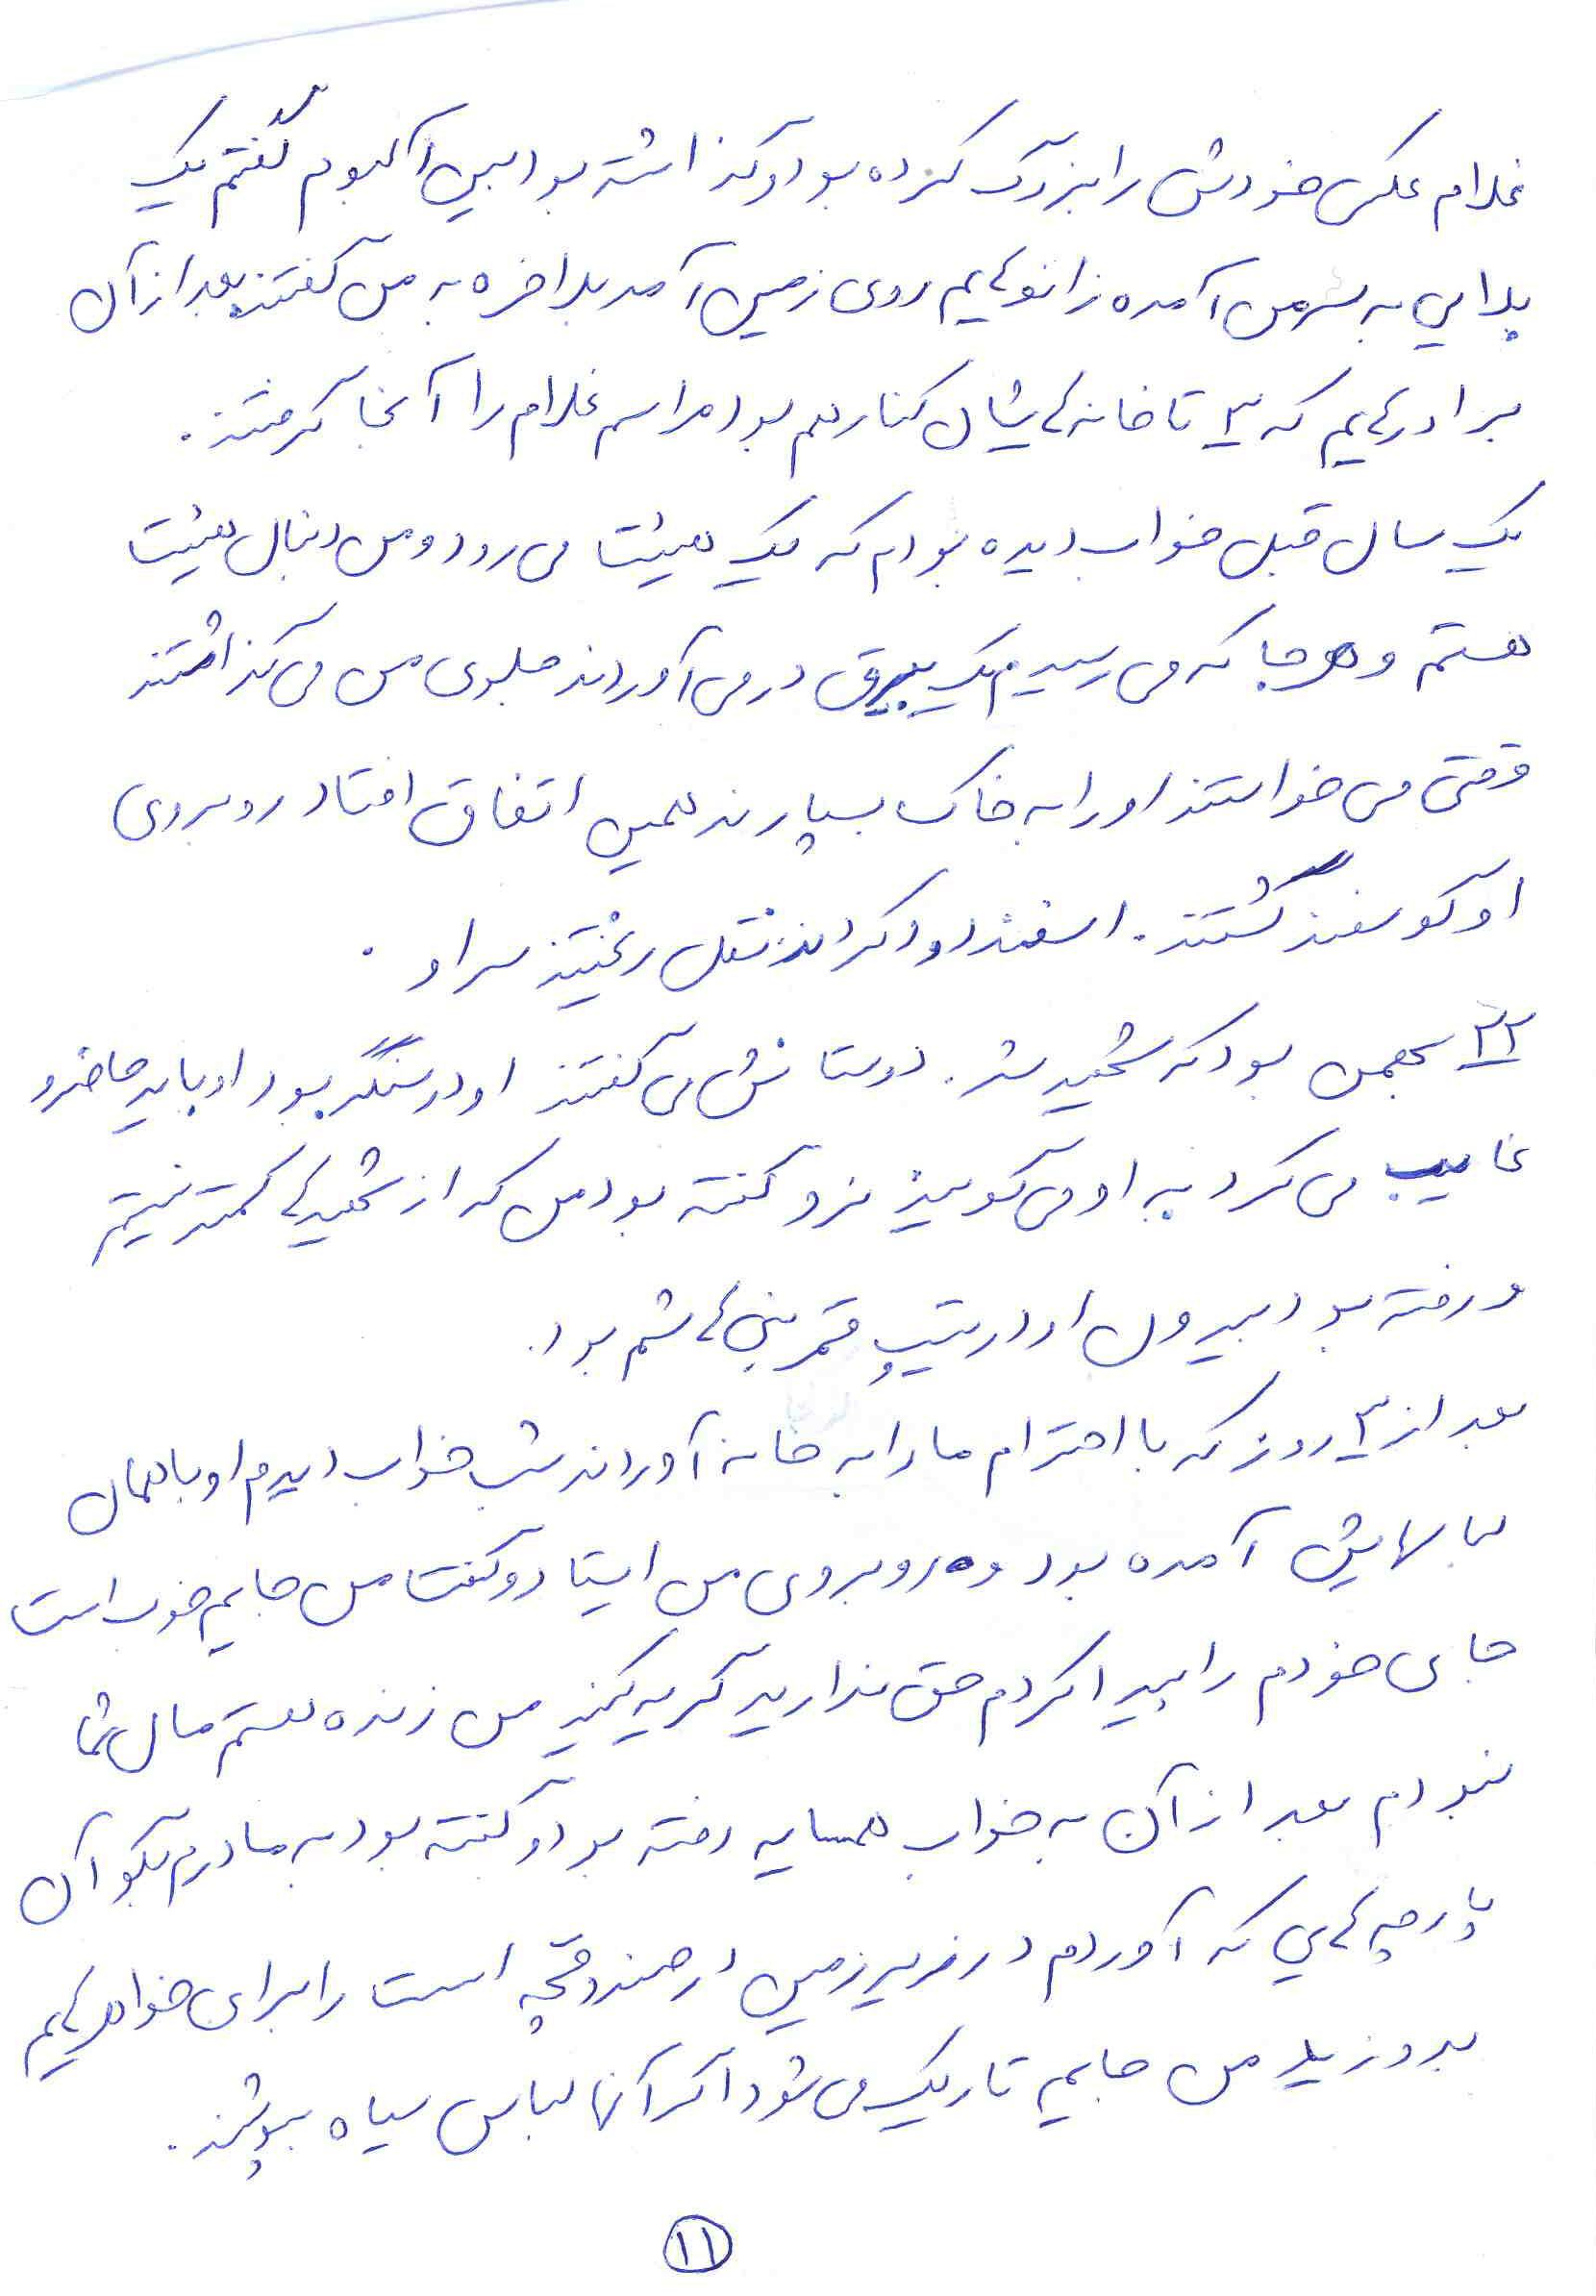 غلام عکس خودش را بزرگ کرده بود و گذاشته بود بین آلبوم گفتم یک
بلایی به سر من آمده زانوهایم روی زمین آمد بلاخره به من گفتند بعد از آن
برادرهایم که ۳ تا خانه هایشان کنار هم بود مراسم غلام را آنجا گرفتند.
یک سال قبل خواب دیده بودم که یک هیئت می رود و من دنبال هیئت
هستم و هر جا که می رسیدم یک بیرق در می آوردند جلوی من می گذاشتند
وقتی می خواستند او را به خاک بسپارند همین اتفاق افتاد روبروی
او گوسفند کشتند. اسفند دود کردند نقل ریختند سر او.
۲۲ بهمن بود که شهید شد. دوستانش می گفتند او در سنگر بود او باید حاضر و
غایب می کرد به او می گویند نرو گفته بود من که از شهیدها کمتر نیستم
و رفته بود بیرون او در تیپ قمر بنی هاشم بود.
بعد از ۳ روز که با احترام ما را به خانه آوردند شب خواب دیدم او با همان
لباسهایش آمده بود و روبروی من ایستاد و گفت من جایم خوب است
جای خودم را پیدا کردم حق ندارید گریه کنید من زنده هستم مال شما
نبودم بعد از آن به خواب همسایه رفته بود و گفته بود به مادرم بگو آن
پارچه هایی که آوردم در زیرزمین در صندوقچه است را برای خواهرهایم
بدوزید من جایم تاریک می شود اگر آنها لباس سیاه بپوشند.
۱۱